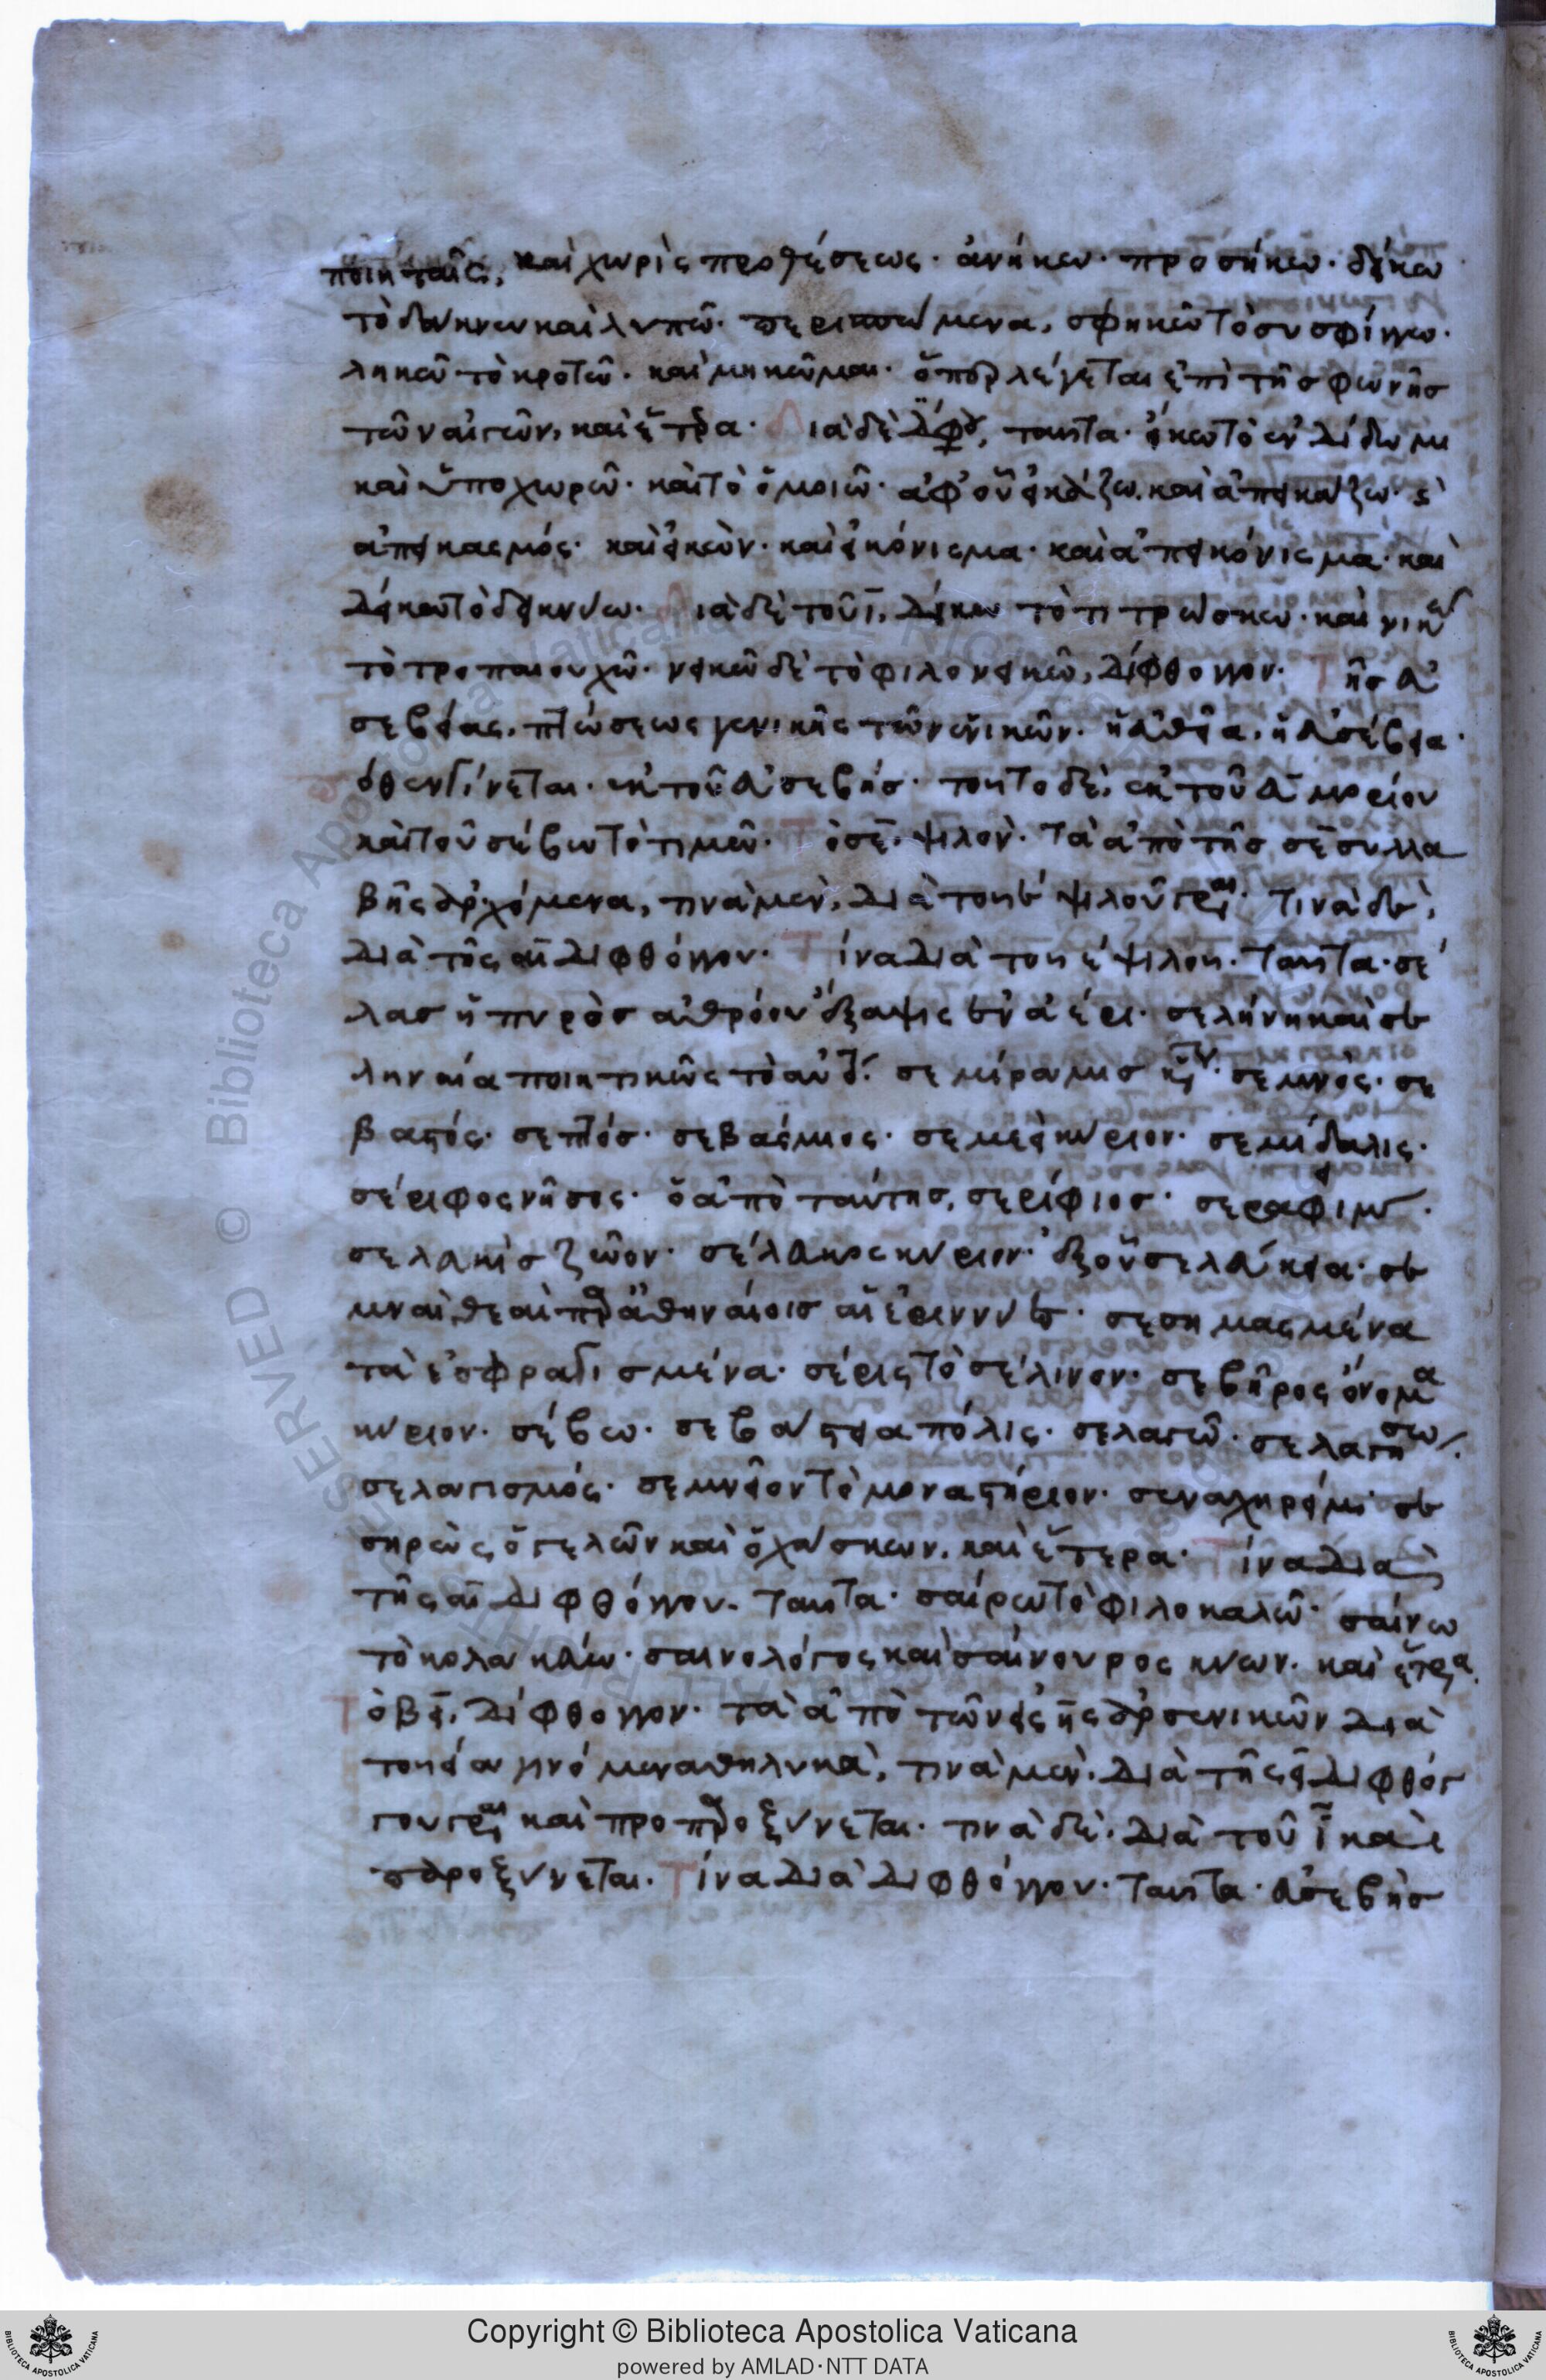 ποιηταῖς, καὶ χωρὶς προθέσεως· ἀνήκω· προσήκω· δήκω
τὸ δάκνω καὶ λυπῶ· περισπώμενα, σφηκῶ τὸ συσφίγγω·
ληκῶ τὸ κροτῶ· καὶ μηκῶμαι· ὅπερ λέγεται ἐπὶ τῆς φωνῆς
τῶν αἰγῶν, καὶ ἕτερα· Διὰ δὲ διφθόγγου, ταῦτα· εἴκω τὸ ἐνδίδωμι
καὶ ὑποχωρῶ· καὶ τὸ ὁμοιῶ· ἀφ' οὗ εἰκάζω καὶ ἀπεικάζω· καὶ
ἀπεικασμός· καὶ εἰκών· καὶ εἰκόνισμα· καὶ ἀπεικόνισμα· καὶ
δείκω τὸ δεικνύω· Διὰ δὲ τοῦ ῑ, δίκω τὸ τιτρώσκω· καὶ νικῶ
τὸ τροπαιουχῶ· νεικῶ δὲ τὸ φιλονεικῶ, δίφθογγον· Τῆς ἀ
σεβείας, πτώσεως γενικῆς τῶν ἑνικῶν· ἡ εὐθεῖα, ἡ ἀσέβεια·
ὅθεν γίνεται· ἐκ τοῦ ἀσεβής· τοῦτο δὲ, ἐκ τοῦ ᾱ μορίου
καὶ τοῦ σέβω τὸ τιμῶ· Τὸ σε, ψιλόν· τὰ ἀπὸ τῆς σε συλλα
βῆς ἀρχόμενα, τινὰ μὲν, διὰ τοῦ ε ψιλοῦ γράφεται· τινὰ δὲ,
διὰ τῆς αι διφθόγγου· Τίνα διὰ τοῦ ε ψιλοῦ· ταῦτα· σέ
λας ἡ πυρὸς ἀθρόον ἔξαψις ἐν ἀέρι· σελήνη καὶ σε
ληναία ποιητικῶς τὸ αὐτό· σεμίραμις κύριον· σεμνός· σε
βαστός· σεπτός· σεβάσμιος· σεμεεὶ κύριον· σεμίδαλις·
σέριφος νῆσος· ὁ ἀπὸ ταύτης, σερίφιος· σεραφίμ·
σελακὶς ζῶον· σέλευκος κύριον· ἐξ οὗ σελεύκεια· σε
μναὶ θεαὶ παρὰ ἀθηναίοις αἱ ἐριννύες· σεσημασμένα
τὰ ἐσφραγισμένα· σέρις τὸ σέλινον· σεβῆρος ὄνομα
κύριον· σέβω· σεβάστεια πόλις· σελαγῶ· σελαγήσω·
σελαγισμός· σεμνεῖον τὸ μοναστήριον· σεναχηρείμ· σε
σηρὼς, ὁ γελῶν καὶ ὁ χάσκων, καὶ ἕτερα· Τίνα διὰ
τῆς αι διφθόγγου· ταῦτα· σαίρω τὸ φιλοκαλῶ· σαίνω
τὸ κολακεύω· σαινολόγος καὶ σαίνουρος κύων· καὶ ἕτερα·
Τὸ βει, δίφθογγον· τὰ ἀπὸ τῶν εἰς ης ἀρσενικῶν διὰ
τοῦ εια γινόμενα θηλυκὰ, τινὰ μὲν, διὰ τῆς ει διφθόγ
γου γράφεται καὶ προπαροξύνεται· τινὰ δὲ, διὰ τοῦ ῑ καὶ
παροξύνεται· Τίνα διὰ διφθόγγου· ταῦτα· ἀσεβὴς
Copyright © Biblioteca Apostolica Vaticana
powered by AMLAD·NTT DATA